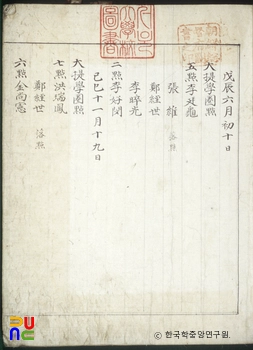 戊辰六月初十日
大提學圈點
五點李廷龜
張維 落點
鄭經世
李晬光
二點李好閔
己巳十一月十九日
大提學圈點
七點洪瑞鳳
鄭經世 落點
六點金尚憲
ⓒ 한국학중앙연구원